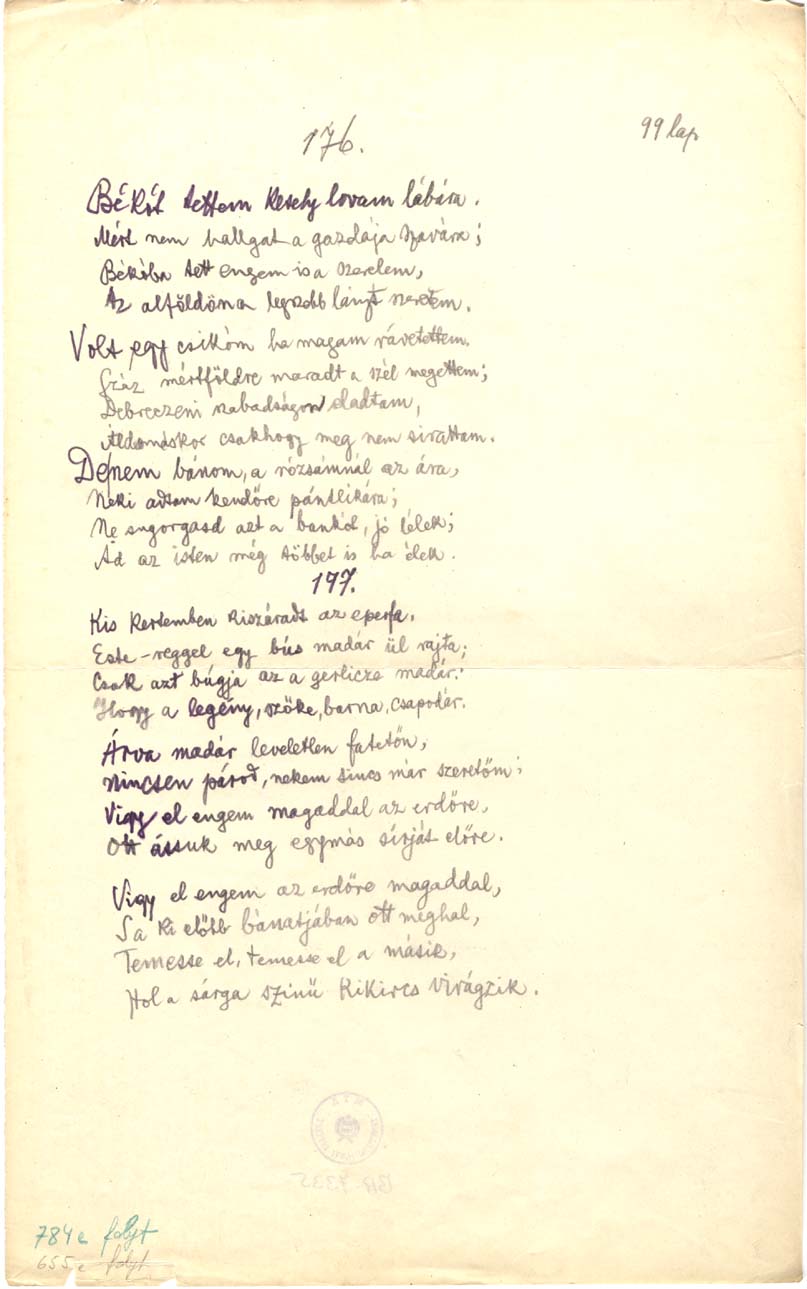 99 lap
176.
Békót tettem Kesely lovam lábára.
Mért nem hallgat a gazdája szavára;
Békóba tett engem is a szerelem,
Az alföldön a legszebb lányt szeretem.
Volt egy csikóm ha magam rávetettem.
Száz mértföldre maradt a szél megettem;
Debreczeni szabadságon eladtam,
Áldomáskor csakhogy meg nem sirattam.
De nem bánom, a rózsámnál az ára,
Neki adtam kendőre pántlikára;
Ne sugorgasd azt a bankót, jó lélek;
Ád az isten még többet is ha élek.
177.
Kis kertemben kiszáradt az eperfa.
Este-reggel egy bús madár ül rajta;
Csak azt búgja az a gerlicze madár:
Hogy a legény, szőke, barna, csapodár.
Árva madár leveletlen fatetőn,
Nincsen párod, nekem sincs már szeretőm;
Vigy el engem magaddal az erdőre,
Ott ássuk meg egymás sírját előre.
Vigy el engem az erdőre magaddal,
S a ki előbb bánatjában ott meghal,
Temesse el, temesse el a másik,
Hol a sárga szinű Kikircs virágzik.
BA 7335
784 e folyt
655 e folyt